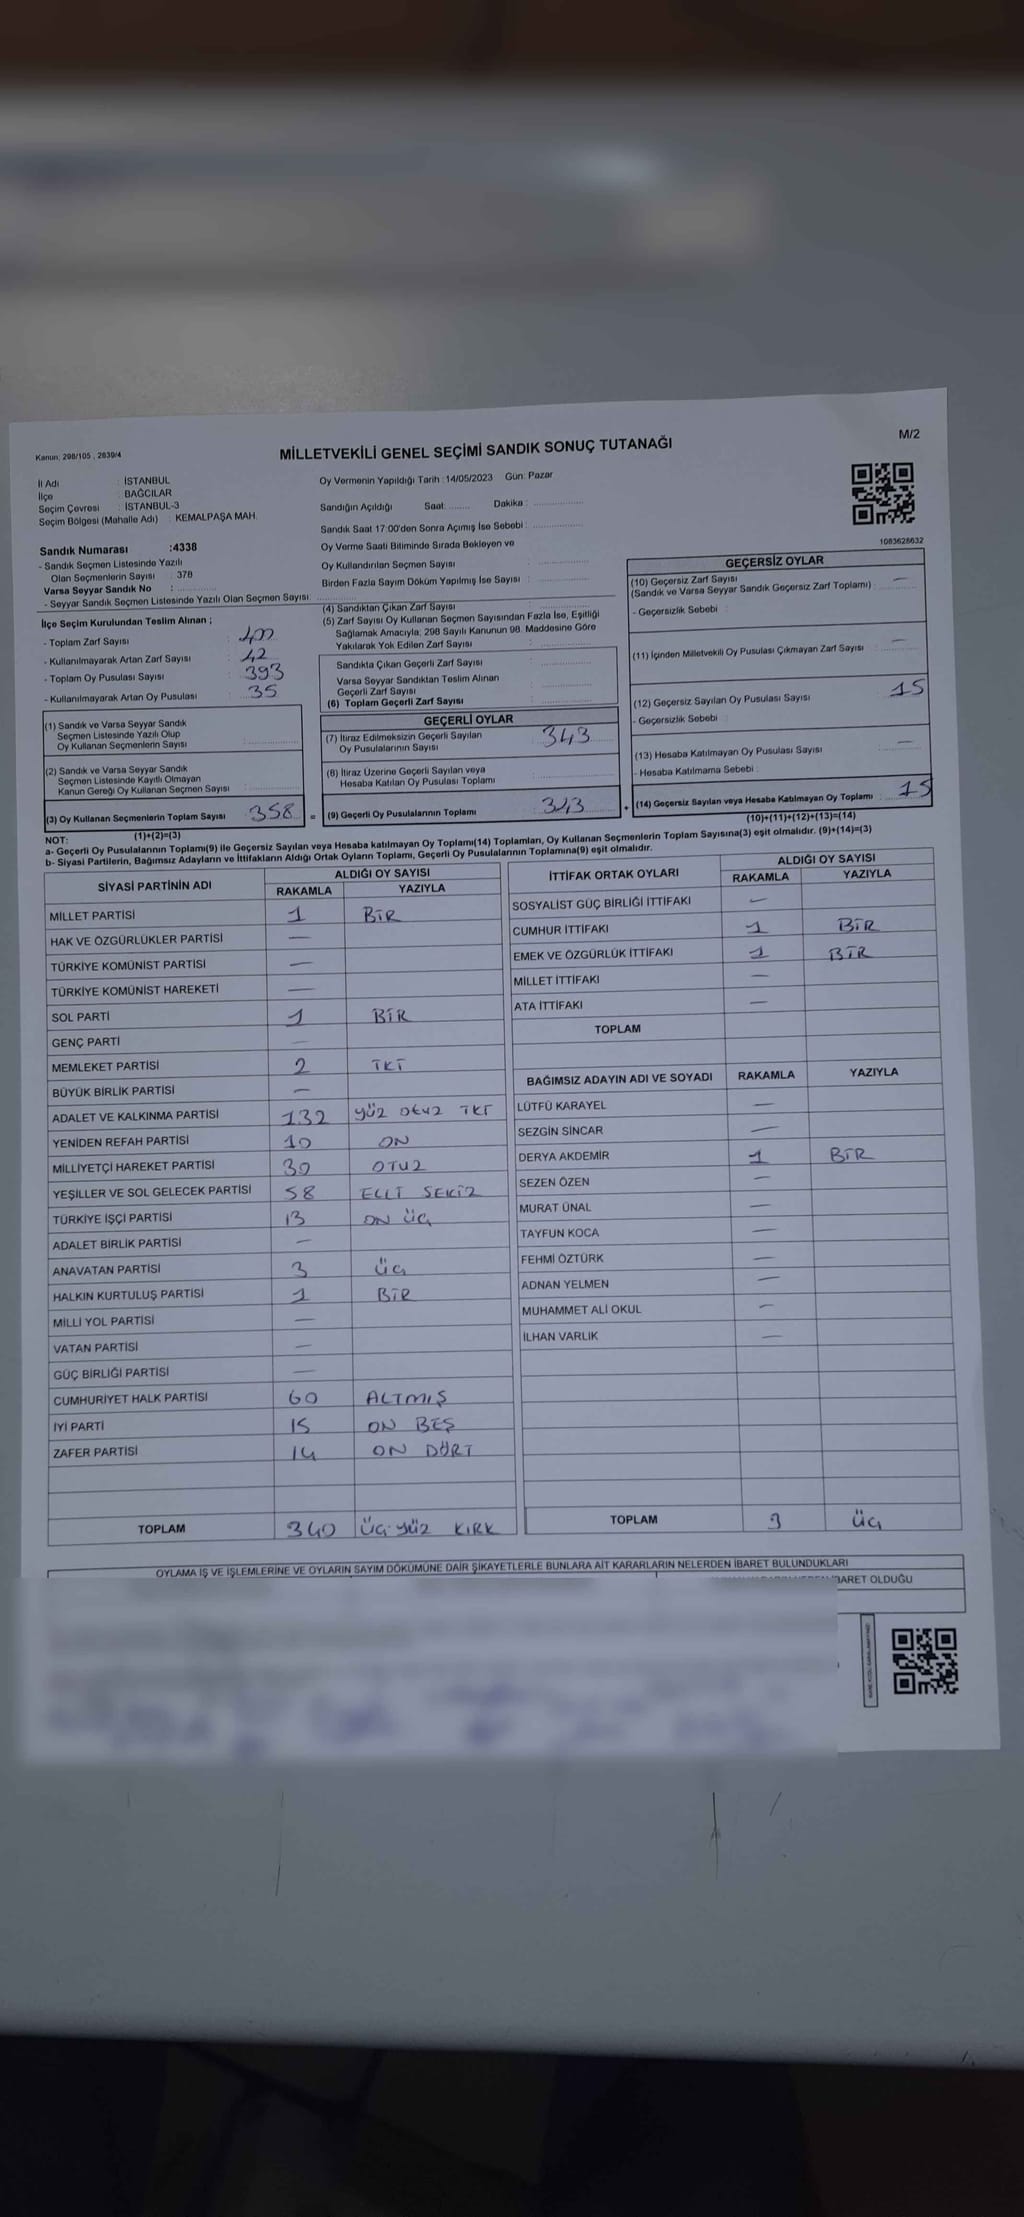 Kanun: 298/105 , 2839/4
MİLLETVEKİLİ GENEL SEÇİMİ SANDIK SONUÇ TUTANAĞI
M/2
İl Adı : İSTANBUL
İlçe : BAĞCILAR
Seçim Çevresi : İSTANBUL-3
Seçim Bölgesi (Mahalle Adı) : KEMALPAŞA MAH.
Oy Vermenin Yapıldığı Tarih :14/05/2023 Gün: Pazar
Sandığın Açıldığı Saat: ........ Dakika : ................
Sandık Saat 17:00'den Sonra Açımış İse Sebebi : ................
Oy Verme Saati Bitiminde Sırada Bekleyen ve
Oy Kullandırılan Seçmen Sayısı : ................
Birden Fazla Sayım Döküm Yapılmış İse Sayısı : ................
1083628632
Sandık Numarası :4338
- Sandık Seçmen Listesinde Yazılı
Olan Seçmenlerin Sayısı : 378
Varsa Seyyar Sandık No : ................
- Seyyar Sandık Seçmen Listesinde Yazılı Olan Seçmen Sayısı: ................
İlçe Seçim Kurulundan Teslim Alınan ;
- Toplam Zarf Sayısı : 400
- Kullanılmayarak Artan Zarf Sayısı : 42
- Toplam Oy Pusulası Sayısı : 393
- Kullanılmayarak Artan Oy Pusulası : 35
(1) Sandık ve Varsa Seyyar Sandık
Seçmen Listesinde Yazılı Olup
Oy Kullanan Seçmenlerin Sayısı : ................
(2) Sandık ve Varsa Seyyar Sandık
Seçmen Listesinde Kayıtlı Olmayan
Kanun Gereği Oy Kullanan Seçmen Sayısı : ................
(3) Oy Kullanan Seçmenlerin Toplam Sayısı : 358 =
(1)+(2)=(3)
(4) Sandıktan Çıkan Zarf Sayısı : ................
(5) Zarf Sayısı Oy Kullanan Seçmen Sayısından Fazla İse, Eşitliği
Sağlamak Amacıyla; 298 Sayılı Kanunun 98. Maddesine Göre
Yakılarak Yok Edilen Zarf Sayısı : ................
Sandıkta Çıkan Geçerli Zarf Sayısı : ................
Varsa Seyyar Sandıktan Teslim Alınan
Geçerli Zarf Sayısı : ................
(6) Toplam Geçerli Zarf Sayısı : ................
GEÇERLİ OYLAR
(7) İtiraz Edilmeksizin Geçerli Sayılan
Oy Pusulalarının Sayısı : 343
(8) İtiraz Üzerine Geçerli Sayılan veya
Hesaba Katılan Oy Pusulası Toplamı : ................
(9) Geçerli Oy Pusulalarının Toplamı : 343 +
GEÇERSİZ OYLAR
(10) Geçersiz Zarf Sayısı
(Sandık ve Varsa Seyyar Sandık Geçersiz Zarf Toplamı) : —
- Geçersizlik Sebebi :
(11) İçinden Milletvekili Oy Pusulası Çıkmayan Zarf Sayısı : —
(12) Geçersiz Sayılan Oy Pusulası Sayısı : 15
- Geçersizlik Sebebi :
(13) Hesaba Katılmayan Oy Pusulası Sayısı : —
- Hesaba Katılmama Sebebi :
(14) Geçersiz Sayılan veya Hesaba Katılmayan Oy Toplamı : 15
(10)+(11)+(12)+(13)=(14)
NOT:
a- Geçerli Oy Pusulalarının Toplamı(9) ile Geçersiz Sayılan veya Hesaba katılmayan Oy Toplamı(14) Toplamları, Oy Kullanan Seçmenlerin Toplam Sayısına(3) eşit olmalıdır. (9)+(14)=(3)
b- Siyasi Partilerin, Bağımsız Adayların ve İttifakların Aldığı Ortak Oyların Toplamı, Geçerli Oy Pusulalarının Toplamına(9) eşit olmalıdır.
SİYASİ PARTİNİN ADI
ALDIĞI OY SAYISI
RAKAMLA YAZIYLA
MİLLET PARTİSİ 1 BİR
HAK VE ÖZGÜRLÜKLER PARTİSİ —
TÜRKİYE KOMÜNİST PARTİSİ —
TÜRKİYE KOMÜNİST HAREKETİ —
SOL PARTİ 1 BİR
GENÇ PARTİ —
MEMLEKET PARTİSİ 2 İKİ
BÜYÜK BİRLİK PARTİSİ —
ADALET VE KALKINMA PARTİSİ 132 YÜZ OTUZ İKİ
YENİDEN REFAH PARTİSİ 10 ON
MİLLİYETÇİ HAREKET PARTİSİ 30 OTUZ
YEŞİLLER VE SOL GELECEK PARTİSİ 58 ELLİ SEKİZ
TÜRKİYE İŞÇİ PARTİSİ 13 ON ÜÇ
ADALET BİRLİK PARTİSİ —
ANAVATAN PARTİSİ 3 ÜÇ
HALKIN KURTULUŞ PARTİSİ 1 BİR
MİLLİ YOL PARTİSİ —
VATAN PARTİSİ —
GÜÇ BİRLİĞİ PARTİSİ —
CUMHURİYET HALK PARTİSİ 60 ALTMIŞ
İYİ PARTİ 15 ON BEŞ
ZAFER PARTİSİ 14 ON DÖRT
TOPLAM 340 ÜÇ YÜZ KIRK
İTTİFAK ORTAK OYLARI
ALDIĞI OY SAYISI
RAKAMLA YAZIYLA
SOSYALİST GÜÇ BİRLİĞİ İTTİFAKI —
CUMHUR İTTİFAKI 1 BİR
EMEK VE ÖZGÜRLÜK İTTİFAKI 1 BİR
MİLLET İTTİFAKI —
ATA İTTİFAKI —
TOPLAM
BAĞIMSIZ ADAYIN ADI VE SOYADI RAKAMLA YAZIYLA
LÜTFÜ KARAYEL —
SEZGİN SİNCAR —
DERYA AKDEMİR 1 BİR
SEZEN ÖZEN —
MURAT ÜNAL —
TAYFUN KOCA —
FEHMİ ÖZTÜRK —
ADNAN YELMEN —
MUHAMMET ALİ OKUL —
İLHAN VARLIK —
TOPLAM 3 ÜÇ
OYLAMA İŞ VE İŞLEMLERİNE VE OYLARIN SAYIM DÖKÜMÜNE DAİR ŞİKAYETLERLE BUNLARA AİT KARARLARIN NELERDEN İBARET BULUNDUKLARI
İBARET OLDUĞU